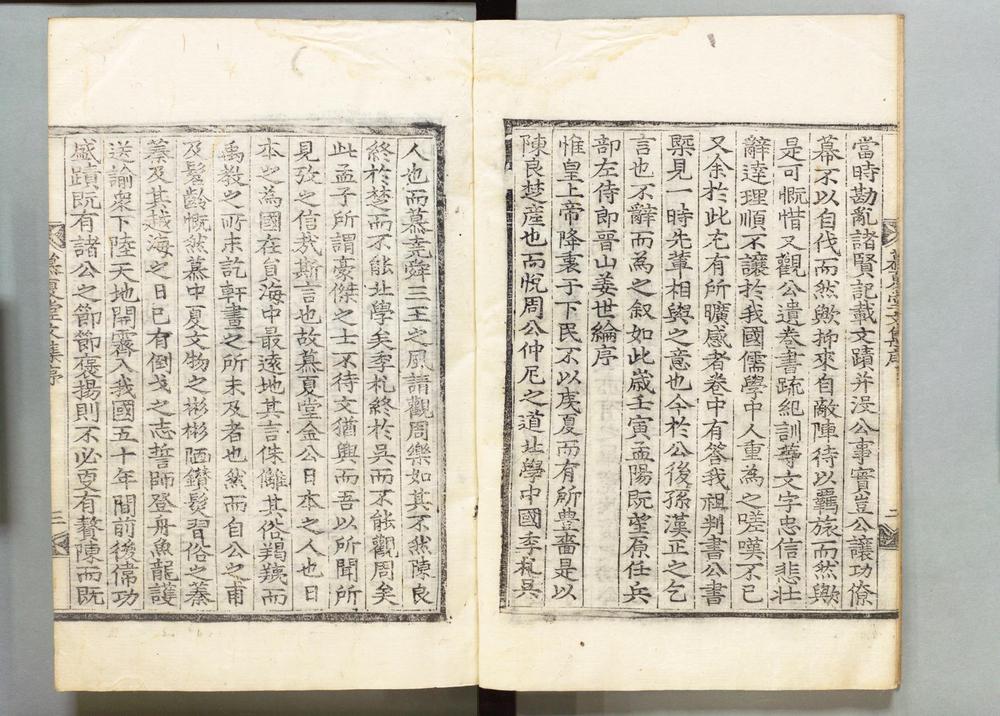 當時勘亂諸賢記載文蹟并漫公事實豈公讓功僚
幕不以自伐而然歟抑來自敵陣待以羈旅而然歟
是可慨惜又觀公遺巻書䟽紀訓等文字忠信悲壯
辭達理順不讓於我國儒學中人重為之嗟嘆不已
又余於此尤有所曠感者卷中有答我祖判書公書
槩見一時先輩相與之意也今於公後孫漢正之乞
言也不辭而為之叙如此歲壬寅孟陽既望原任兵
部左侍郎晉山姜世綸序
惟皇上帝降衷于下民不以戎夏而有所豊嗇是以
陳良楚產也而悅周公仲尼之道北學中國季札吳
慕夏堂文集序
二
人也而慕堯舜三王之風請觀周樂如其不然陳良
終於楚而不能北學矣季札終於吳而不能觀周矣
此孟子所謂豪傑之士不待文猶興而吾以所聞所
見攷之信哉斯言也故慕夏堂金公日本之人也日
本之為國在負海中最遠地其言侏離其俗羯羠而
禹教之所未訖軒畫之所未及者也然而自公之甫
及髫齡慨然慕中夏文物之彬彬陋鑚髮習俗之蓁
蓁及其越海之日已有倒戈之志誓師登舟魚龍護
送諭衆下陸天地開霽入我國五十年間前後偉功
盛蹟既有諸公之節節褒揚則不必更有贅陳而既
慕夏堂文集序
三